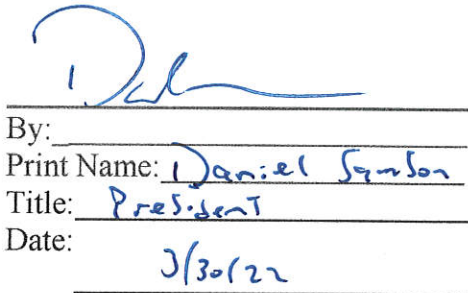 By:
Print Name: Daniel Samson
Title: President
Date:
3/30/22